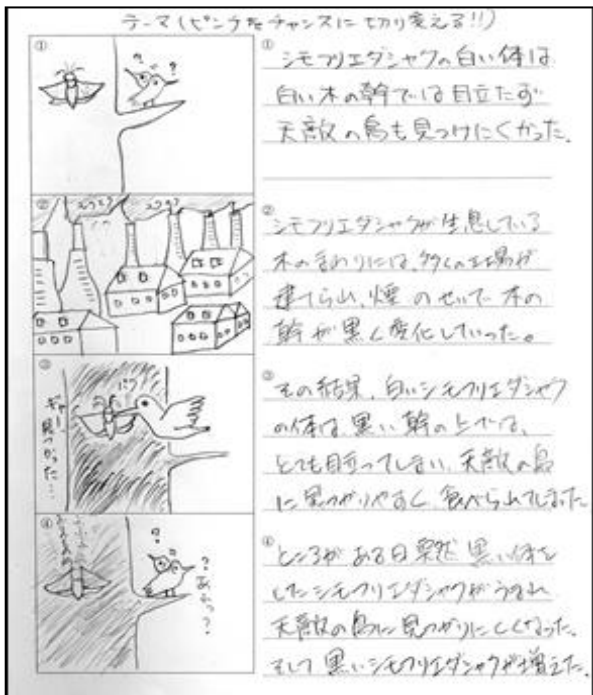 テーマ(ピンチをチャンスに切り変える!!)
①
? ?
①
シモフリエダシャクの白い体は
白い木の幹では目立たず
天敵の鳥も見つけにくかった。
②
モクモク モクモク
②
シモフリエダシャクが生息している
木のまわりには、多くの工場が
建てられ、煙のせいで木の
幹が黒く変化していった。
③
パク
ギャー、見つかった…
③
その結果、白いシモフリエダシャク
の体は黒い幹の上では、
とても目立ってしまい、天敵の鳥
に見つかりやすく、食べられてしまった
④
? ?
あらっ?
④
ところがある日突然黒い体を
したシモフリエダシャクがうまれ
天敵の鳥に見つかりにくくなった。
そして黒いシモフリエダシャクが増えた。